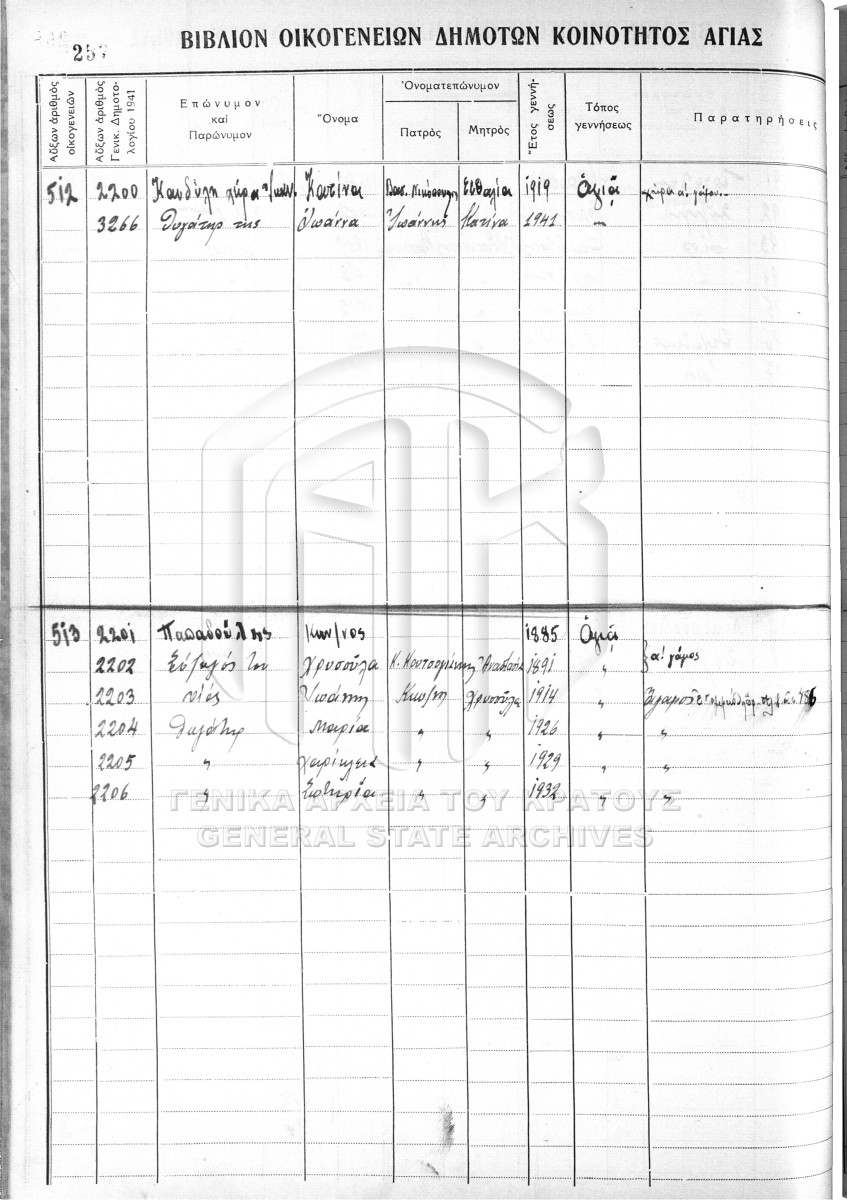 257 ΒΙΒΛΙΟΝ ΟΙΚΟΓΕΝΕΙΩΝ ΔΗΜΟΤΩΝ ΚΟΙΝΟΤΗΤΟΣ ΑΓΙΑΣ
Αὔξων ἀριθμὸς οἰκογενειῶν
Αὔξων ἀριθμὸς Γενικ. Δημοτολογίου 1941
Ἐπώνυμον καὶ Παρώνυμον
Ὄνομα
Ὀνοματεπώνυμον
Πατρὸς
Μητρὸς
Ἔτος γεννήσεως
Τόπος γεννήσεως
Παρατηρήσεις
512 2200 Κανδύλη χήρα Κατίνα Εὐθαλία 1919 Ἁγιᾶ χήρα α! γάμου.
3266 Θυγάτηρ της Ἰωάννα Ἰωάννης Κατίνα 1941 〃
513 2201 Παπαδούλης Κων/νος 1885 Ἁγιᾶ
2202 Σύζυγός του Χρυσούλα Κ. Ἀναστασία 1891 〃 α! γάμος
2203 υἱός Ἰωάννης Κων/νος Χρυσούλα 1914 〃
2204 Θυγάτηρ Μαρία 〃 〃 1926 〃 〃
2205 〃 Χαρίκλεια 〃 〃 1929 〃 〃
2206 〃 Σωτηρία 〃 〃 1932 〃 〃
ΓΕΝΙΚΑ ΑΡΧΕΙΑ ΤΟΥ ΚΡΑΤΟΥΣ
GENERAL STATE ARCHIVES